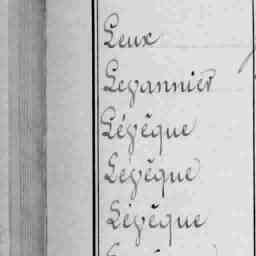 Leux
Levannier
Lévêque
Lévêque
Lévêque